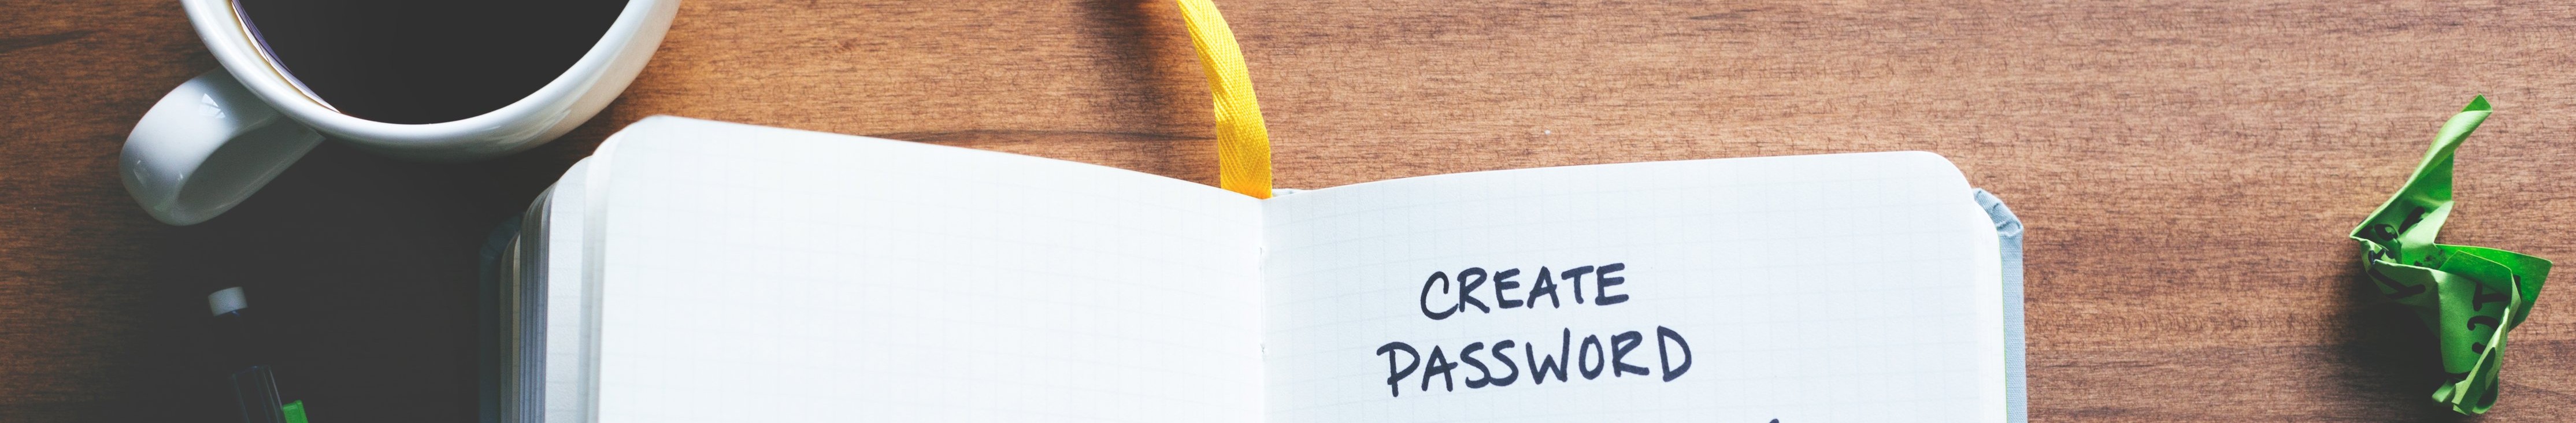 CREATE
PASSWORD